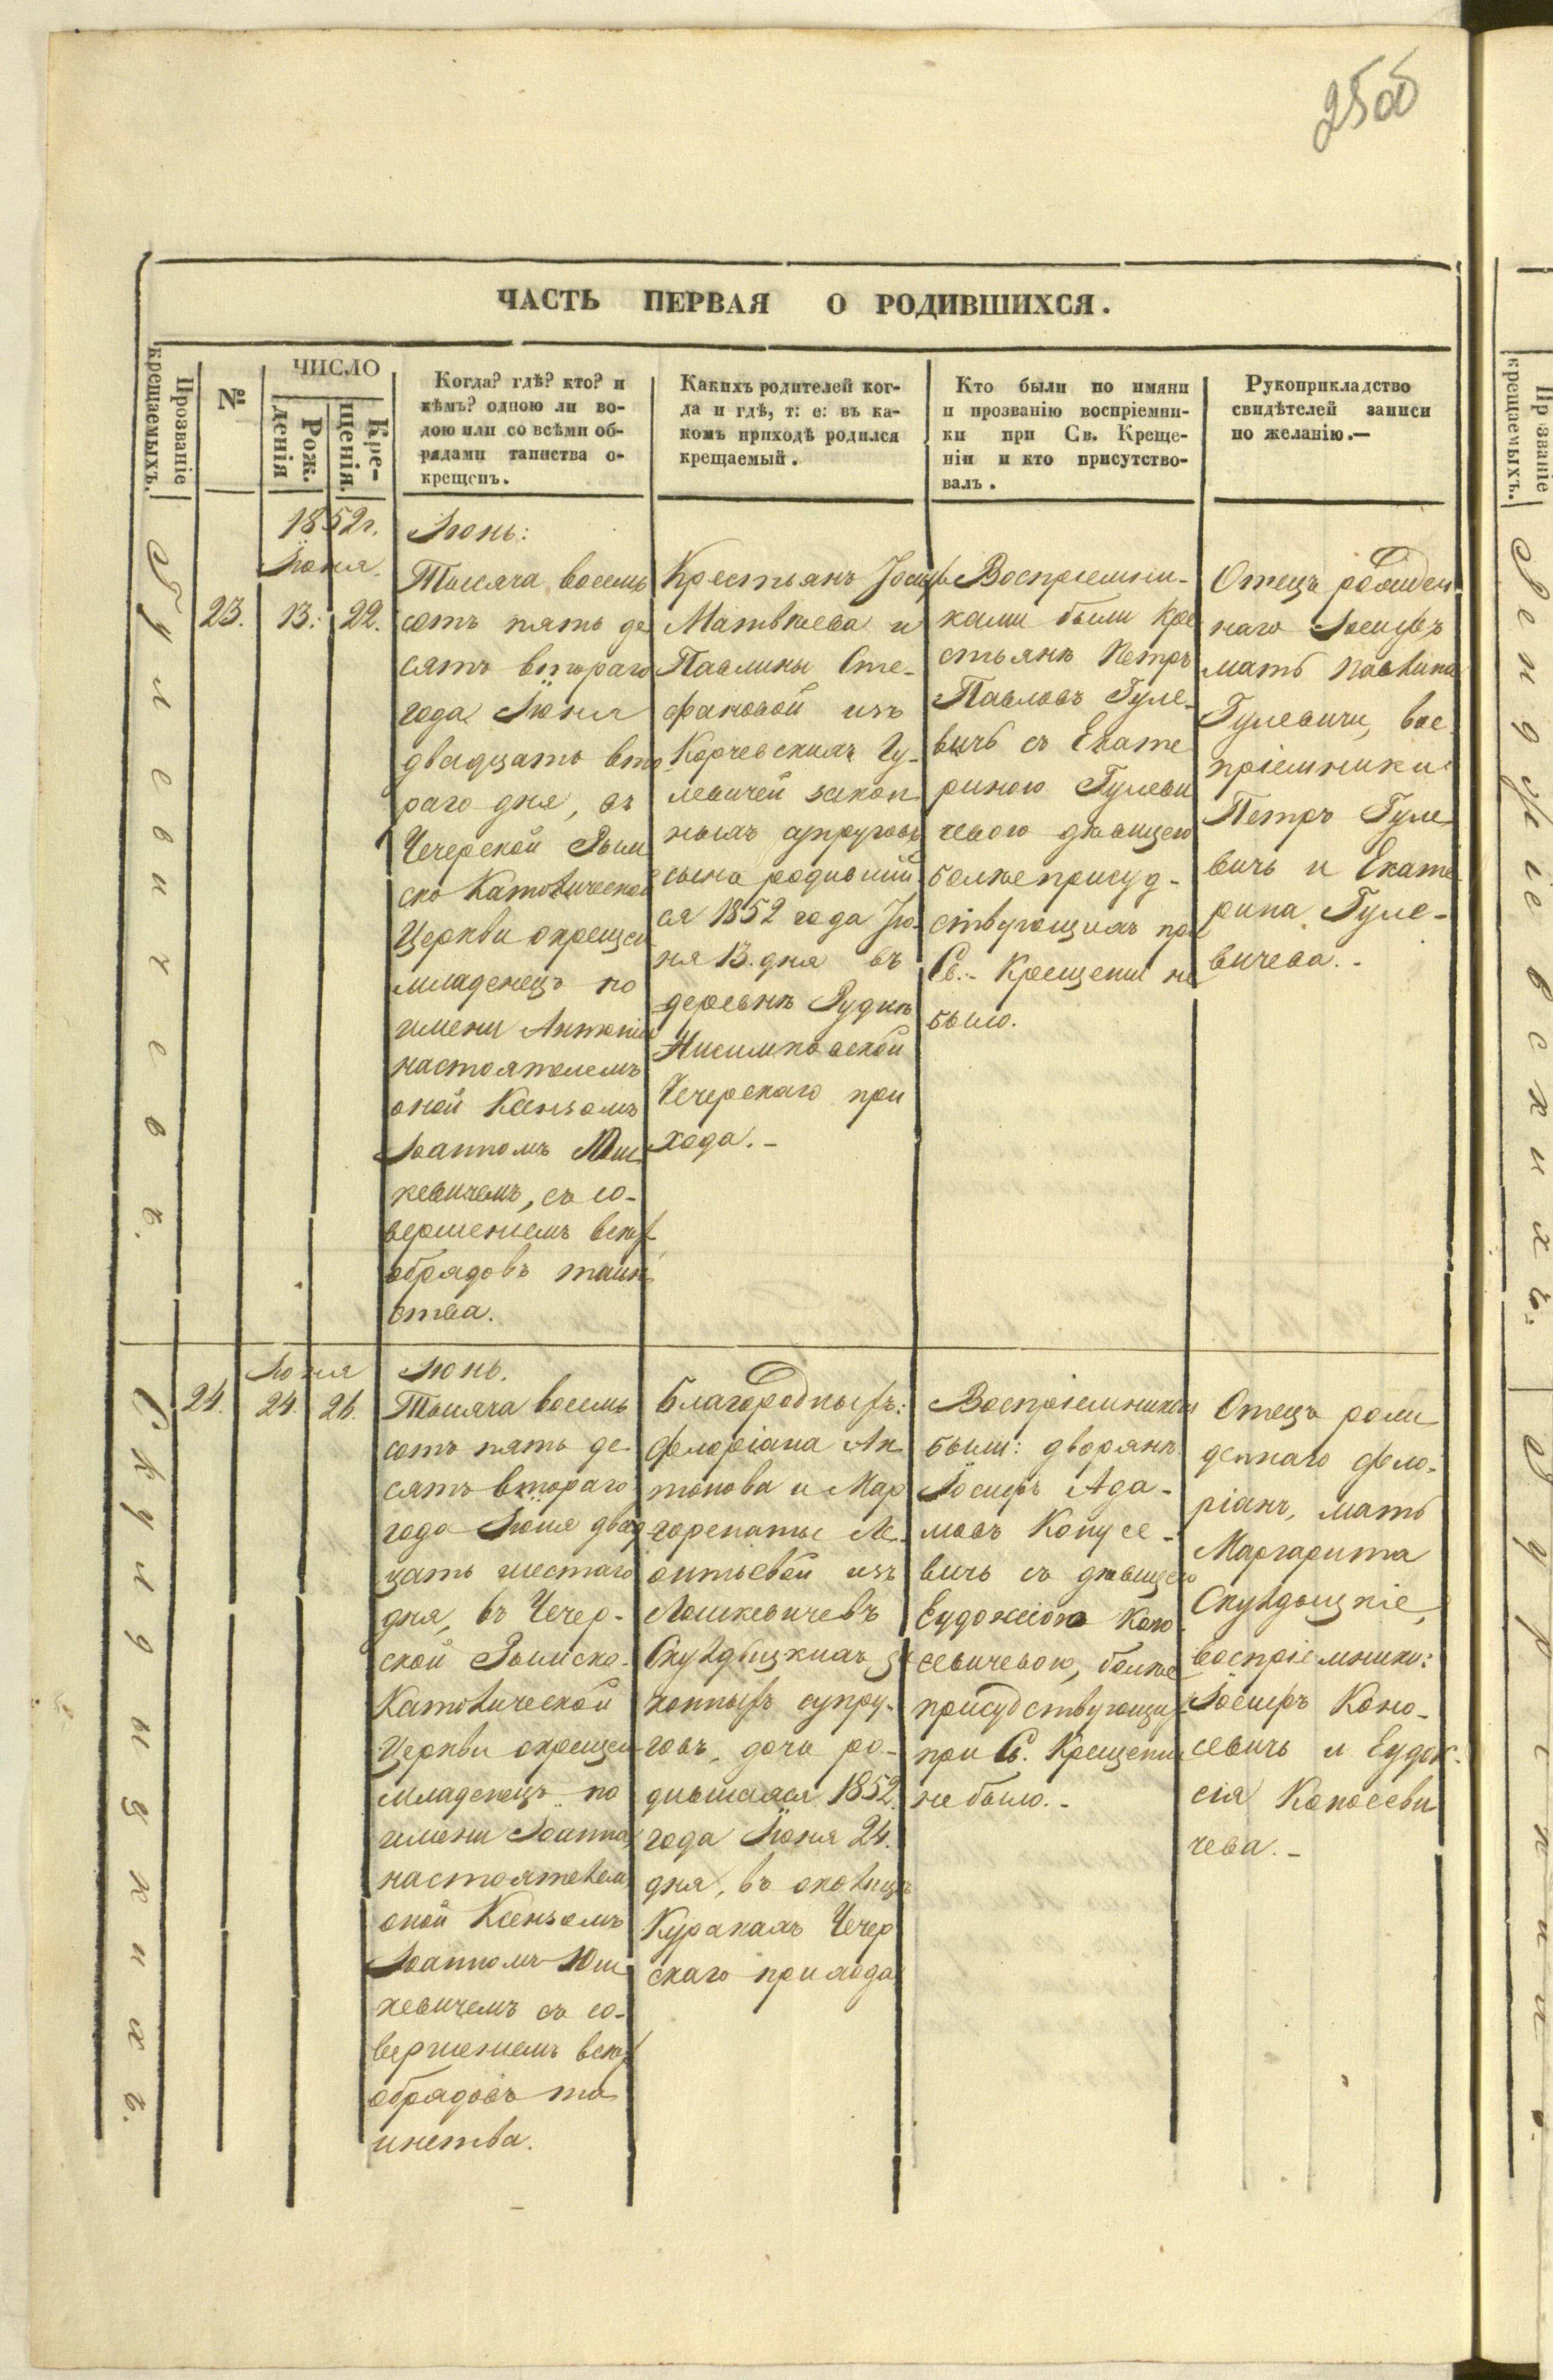 25об
ЧАСТЬ ПЕРВАЯ О РОДИВШИХСЯ.
Прозваніе
крещаемыхъ.
№
ЧИСЛО
Рож.
денія
Кре-
щенія.
Когда? гдѣ? кто? и
кѣмъ? одною ли во-
дою или со всѣми об-
рядами таинства о-
крещенъ.
Какихъ родителей ког-
да и гдѣ, т: е: въ ка-
комъ приходѣ родился
крещаемый.
Кто были по имяни
и прозванію воспріемни-
ки при Св. Креще-
ніи и кто присутство-
валъ.
Рукоприкладство
свидѣтелей записи
по желанію.—
Гулевичевъ.
1852г.
Іюня.
23. 13. 22.
Іюнь:
Тысяча восемь
сотъ пять де
сятъ втораго
года Іюня
двадцать вто
раго дня, въ
Чечерской Рым
ско Католической
Церкви окрещен
младенецъ по
имени Антоній
настоятелемъ
оной Ксензомъ
Іоанномъ Юш
кевичемъ, съ со-
вершеніемъ всѣх
обрядовъ таин
ства.
Крестьянъ Іосифа
Матвѣева и
Павлины Сте-
фановой изъ
Корчевскихъ Гу-
левичей закон
ныхъ супруговъ
сынъ родивший
ся 1852 года Ію-
ня 13. дня въ
деревнѣ Рудни
Нисимковской
Чечерскаго при
хода.-
Воспріемни-
ками были Кре
стьянъ Петръ
Павловъ Гуле-
вичъ съ Екате
риною Гулеви
чевою дѣвицею
болѣе присуд-
ствующихъ при
Св.- Крещении не
было.
Отецъ рожден
наго Іосифъ
мать Павлина
Гулевичи, вос
пріемники
Петръ Гуле
вичъ и Екате
рина Гуле-
вичева.-
Скулдыцкихъ.
Іюня
24. 24. 26.
Іюнь.
Тысяча восемь
сотъ пять де
сятъ втораго
года Іюня двад
цать шестаго
дня, въ Чечер-
ской Рымско-
Католической
Церкви окрещен
младенецъ по
имени Іоанна,
настоятелем
оной Ксензомъ
Іоанномъ Юш
кевичемъ съ со-
вершеніемъ всѣх
обрядовъ та
инства.
Благородныхъ:
Флоріана Ан
тонова и Мар
гореаты Ле-
онтьевой изъ
Лошкевичевъ
Скулдыцкихъ за
конныхъ супру-
говъ, дочь ро-
дившаяся 1852
года Іюня 24.
дня, въ околиц
Куракахъ Чечер
скаго прихода
Воспріемниками
были: дворянъ
Іосифъ Ада-
мовъ Коносе-
вичъ съ дѣвицею
Евдоксіою Коно
севичевою, болѣе
присудствующих
при Св. Крещении
не было.-
Отецъ рож
деннаго Фло-
ріанъ, мать
Маргарита
Скулдыцкіе,
воспріемники:
Іосифъ Коно-
севичъ и Евдок-
сія Коносеви
чева.-
Пр званіе
крещаемыхъ.